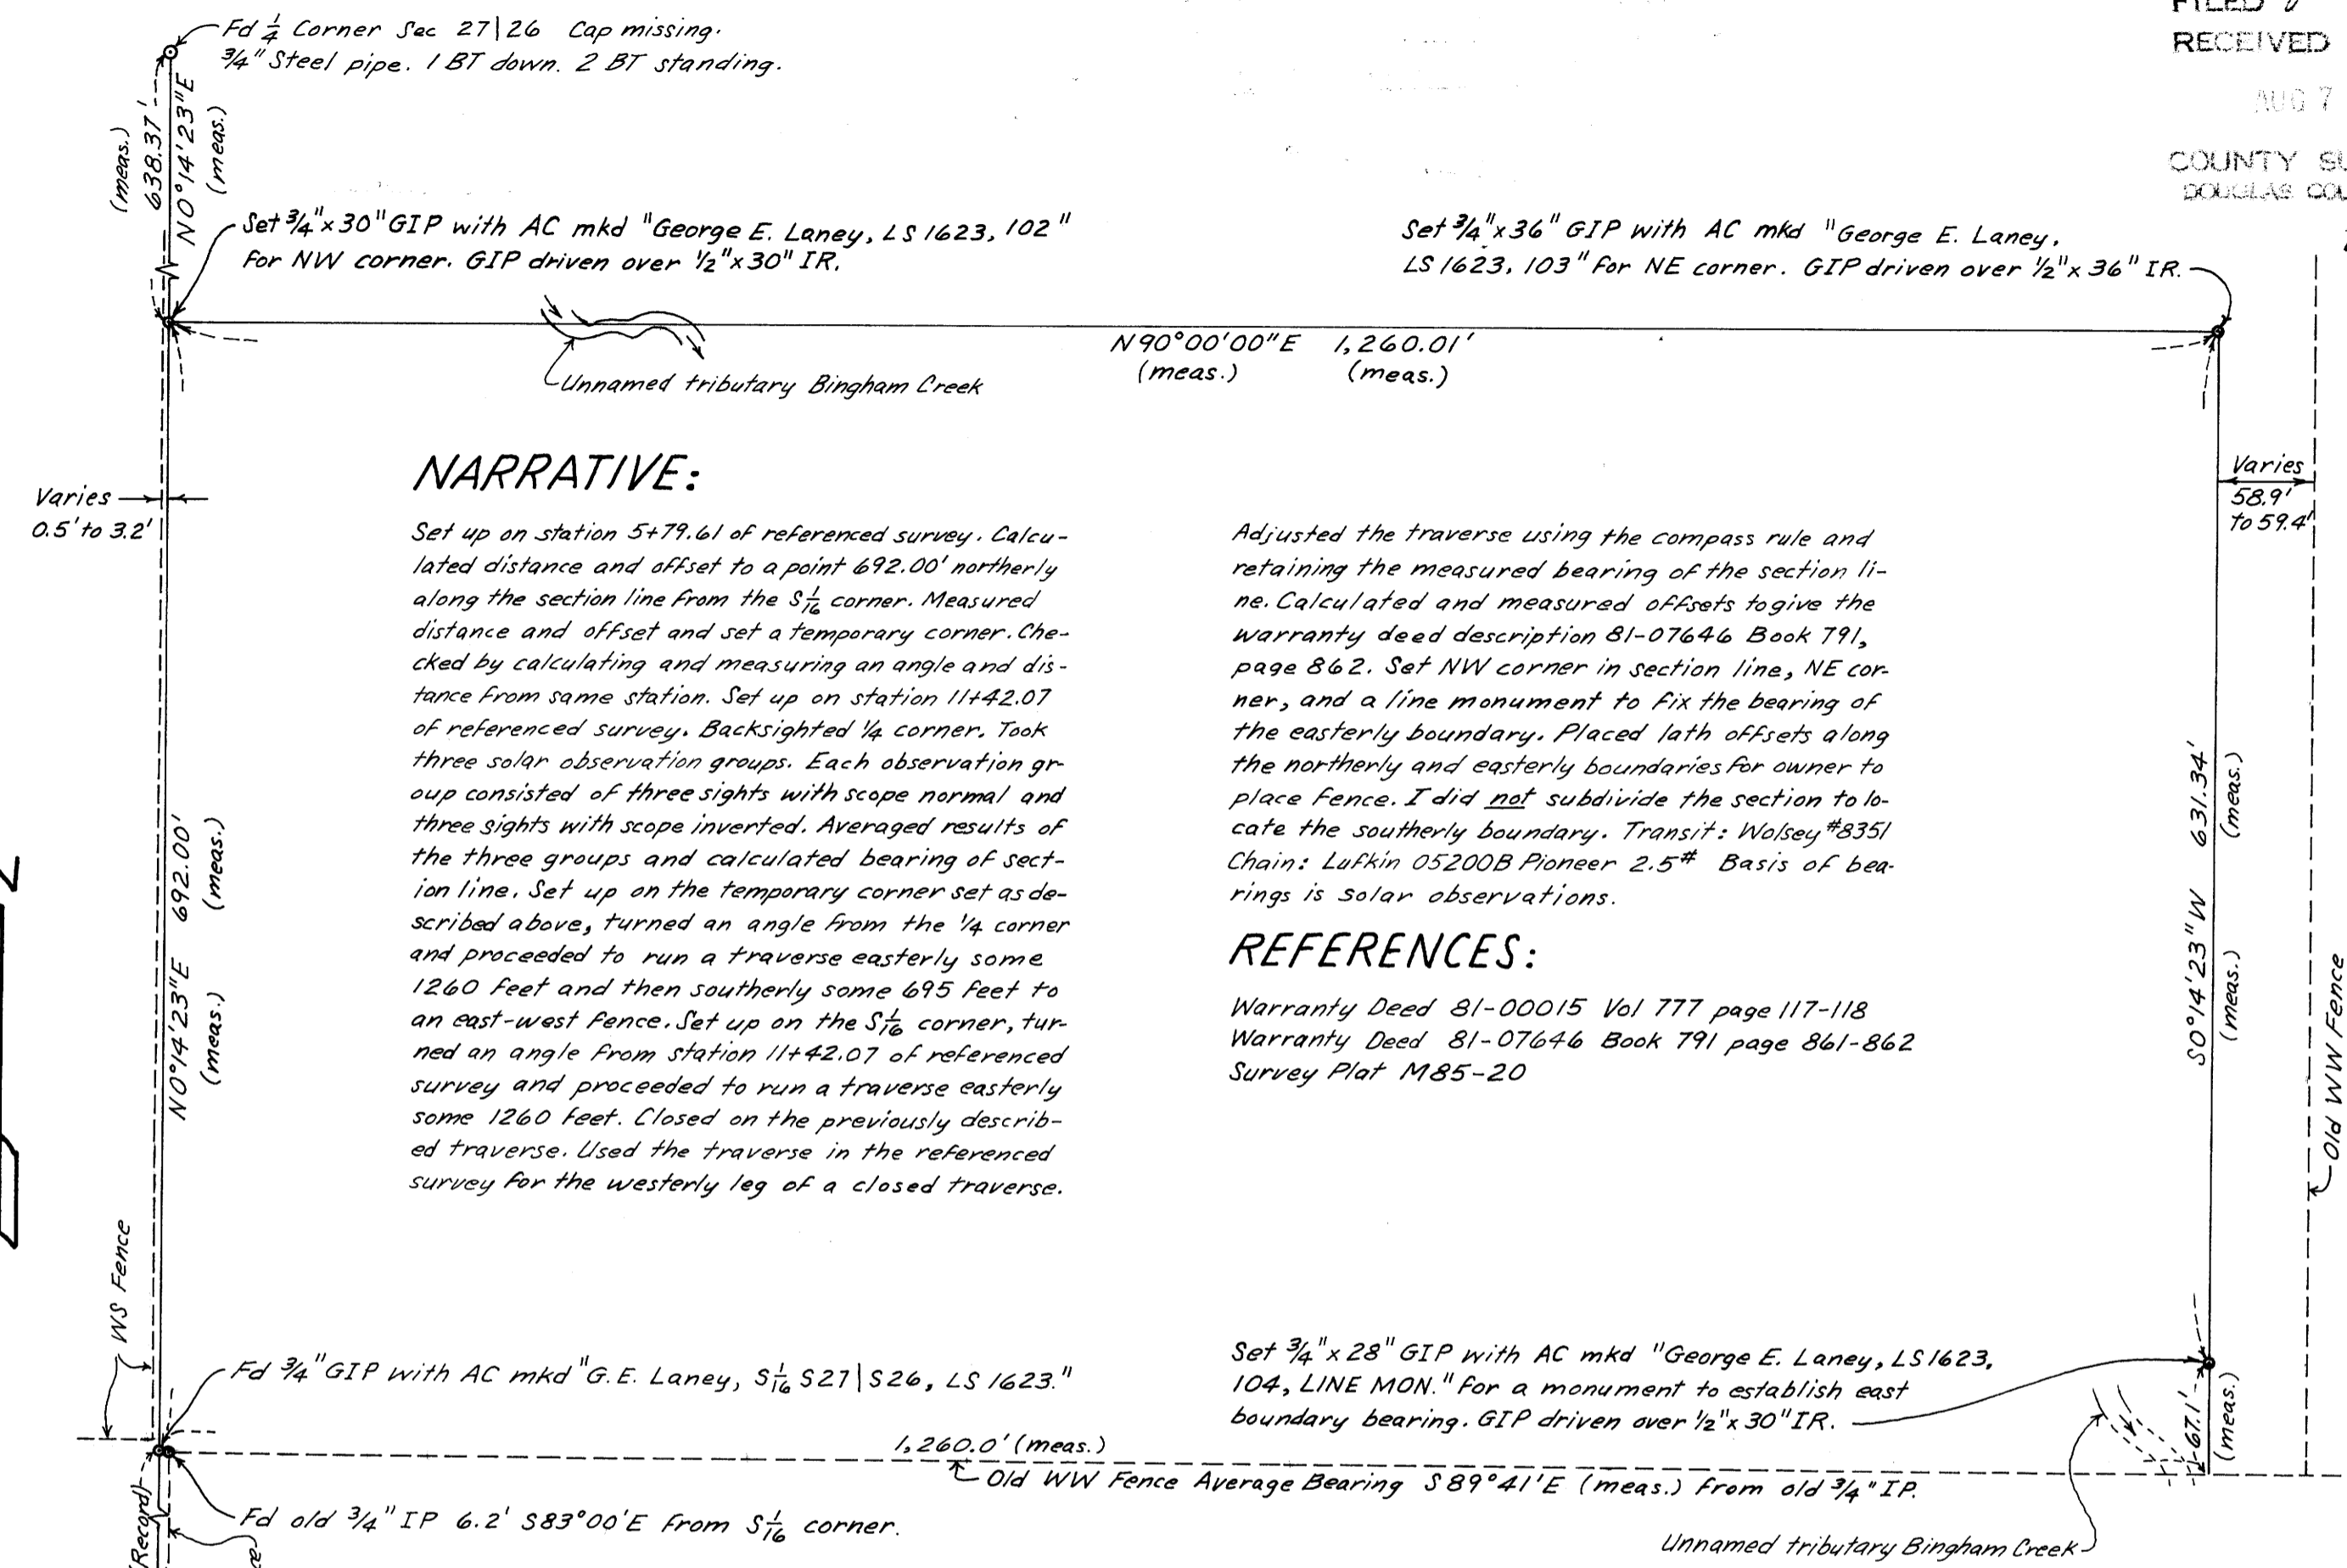 Fd 1/4 Corner Sec 27|26 Cap missing.
3/4" Steel pipe. 1 BT down. 2 BT standing.
RECEIVED
AUG 7
COUNTY
DOUGLAS
(meas.)
638.37'
N0°14'23"E
(meas.)
Set 3/4"x30" GIP with AC mkd "George E. Laney, LS 1623, 102"
for NW corner. GIP driven over 1/2"x30" IR.
Set 3/4"x36" GIP with AC mkd "George E. Laney,
LS 1623, 103" for NE corner. GIP driven over 1/2"x36" IR.
N90°00'00"E 1,260.01'
(meas.) (meas.)
Unnamed tributary Bingham Creek
Varies
0.5' to 3.2'
Varies
58.9'
to 59.4'
NARRATIVE:
Set up on station 5+79.61 of referenced survey. Calcu-
lated distance and offset to a point 692.00' northerly
along the section line from the S1/16 corner. Measured
distance and offset and set a temporary corner. Che-
cked by calculating and measuring an angle and dis-
tance from same station. Set up on station 11+42.07
of referenced survey. Backsighted 1/4 corner. Took
three solar observation groups. Each observation gr-
oup consisted of three sights with scope normal and
three sights with scope inverted. Averaged results of
the three groups and calculated bearing of sect-
ion line. Set up on the temporary corner set as de-
scribed above, turned an angle from the 1/4 corner
and proceeded to run a traverse easterly some
1260 feet and then southerly some 695 feet to
an east-west fence. Set up on the S1/16 corner, tur-
ned an angle from station 11+42.07 of referenced
survey and proceeded to run a traverse easterly
some 1260 feet. Closed on the previously describ-
ed traverse. Used the traverse in the referenced
survey for the westerly leg of a closed traverse.
Adjusted the traverse using the compass rule and
retaining the measured bearing of the section li-
ne. Calculated and measured offsets to give the
warranty deed description 81-07646 Book 791,
page 862. Set NW corner in section line, NE cor-
ner, and a line monument to fix the bearing of
the easterly boundary. Placed lath offsets along
the northerly and easterly boundaries for owner to
place fence. I did not subdivide the section to lo-
cate the southerly boundary. Transit: Wolsey #8351
Chain: Lufkin 05200B Pioneer 2.5# Basis of bea-
rings is solar observations.
REFERENCES:
Warranty Deed 81-00015 Vol 777 page 117-118
Warranty Deed 81-07646 Book 791 page 861-862
Survey Plat M85-20
N0°14'23"E 692.00'
(meas.) (meas.)
S0°14'23"W 631.34'
(meas.) (meas.)
Old WW Fence
WS Fence
Fd 3/4" GIP with AC mkd "G.E. Laney, S1/16 S27|S26, LS 1623."
Set 3/4"x28" GIP with AC mkd "George E. Laney, LS 1623,
104, LINE MON." for a monument to establish east
boundary bearing. GIP driven over 1/2"x30" IR.
67.1'
(meas.)
1,260.0' (meas.)
Old WW Fence Average Bearing S89°41'E (meas.) from old 3/4" IP.
Fd old 3/4" IP 6.2' S83°00'E from S1/16 corner.
(Record)
Unnamed tributary Bingham Creek